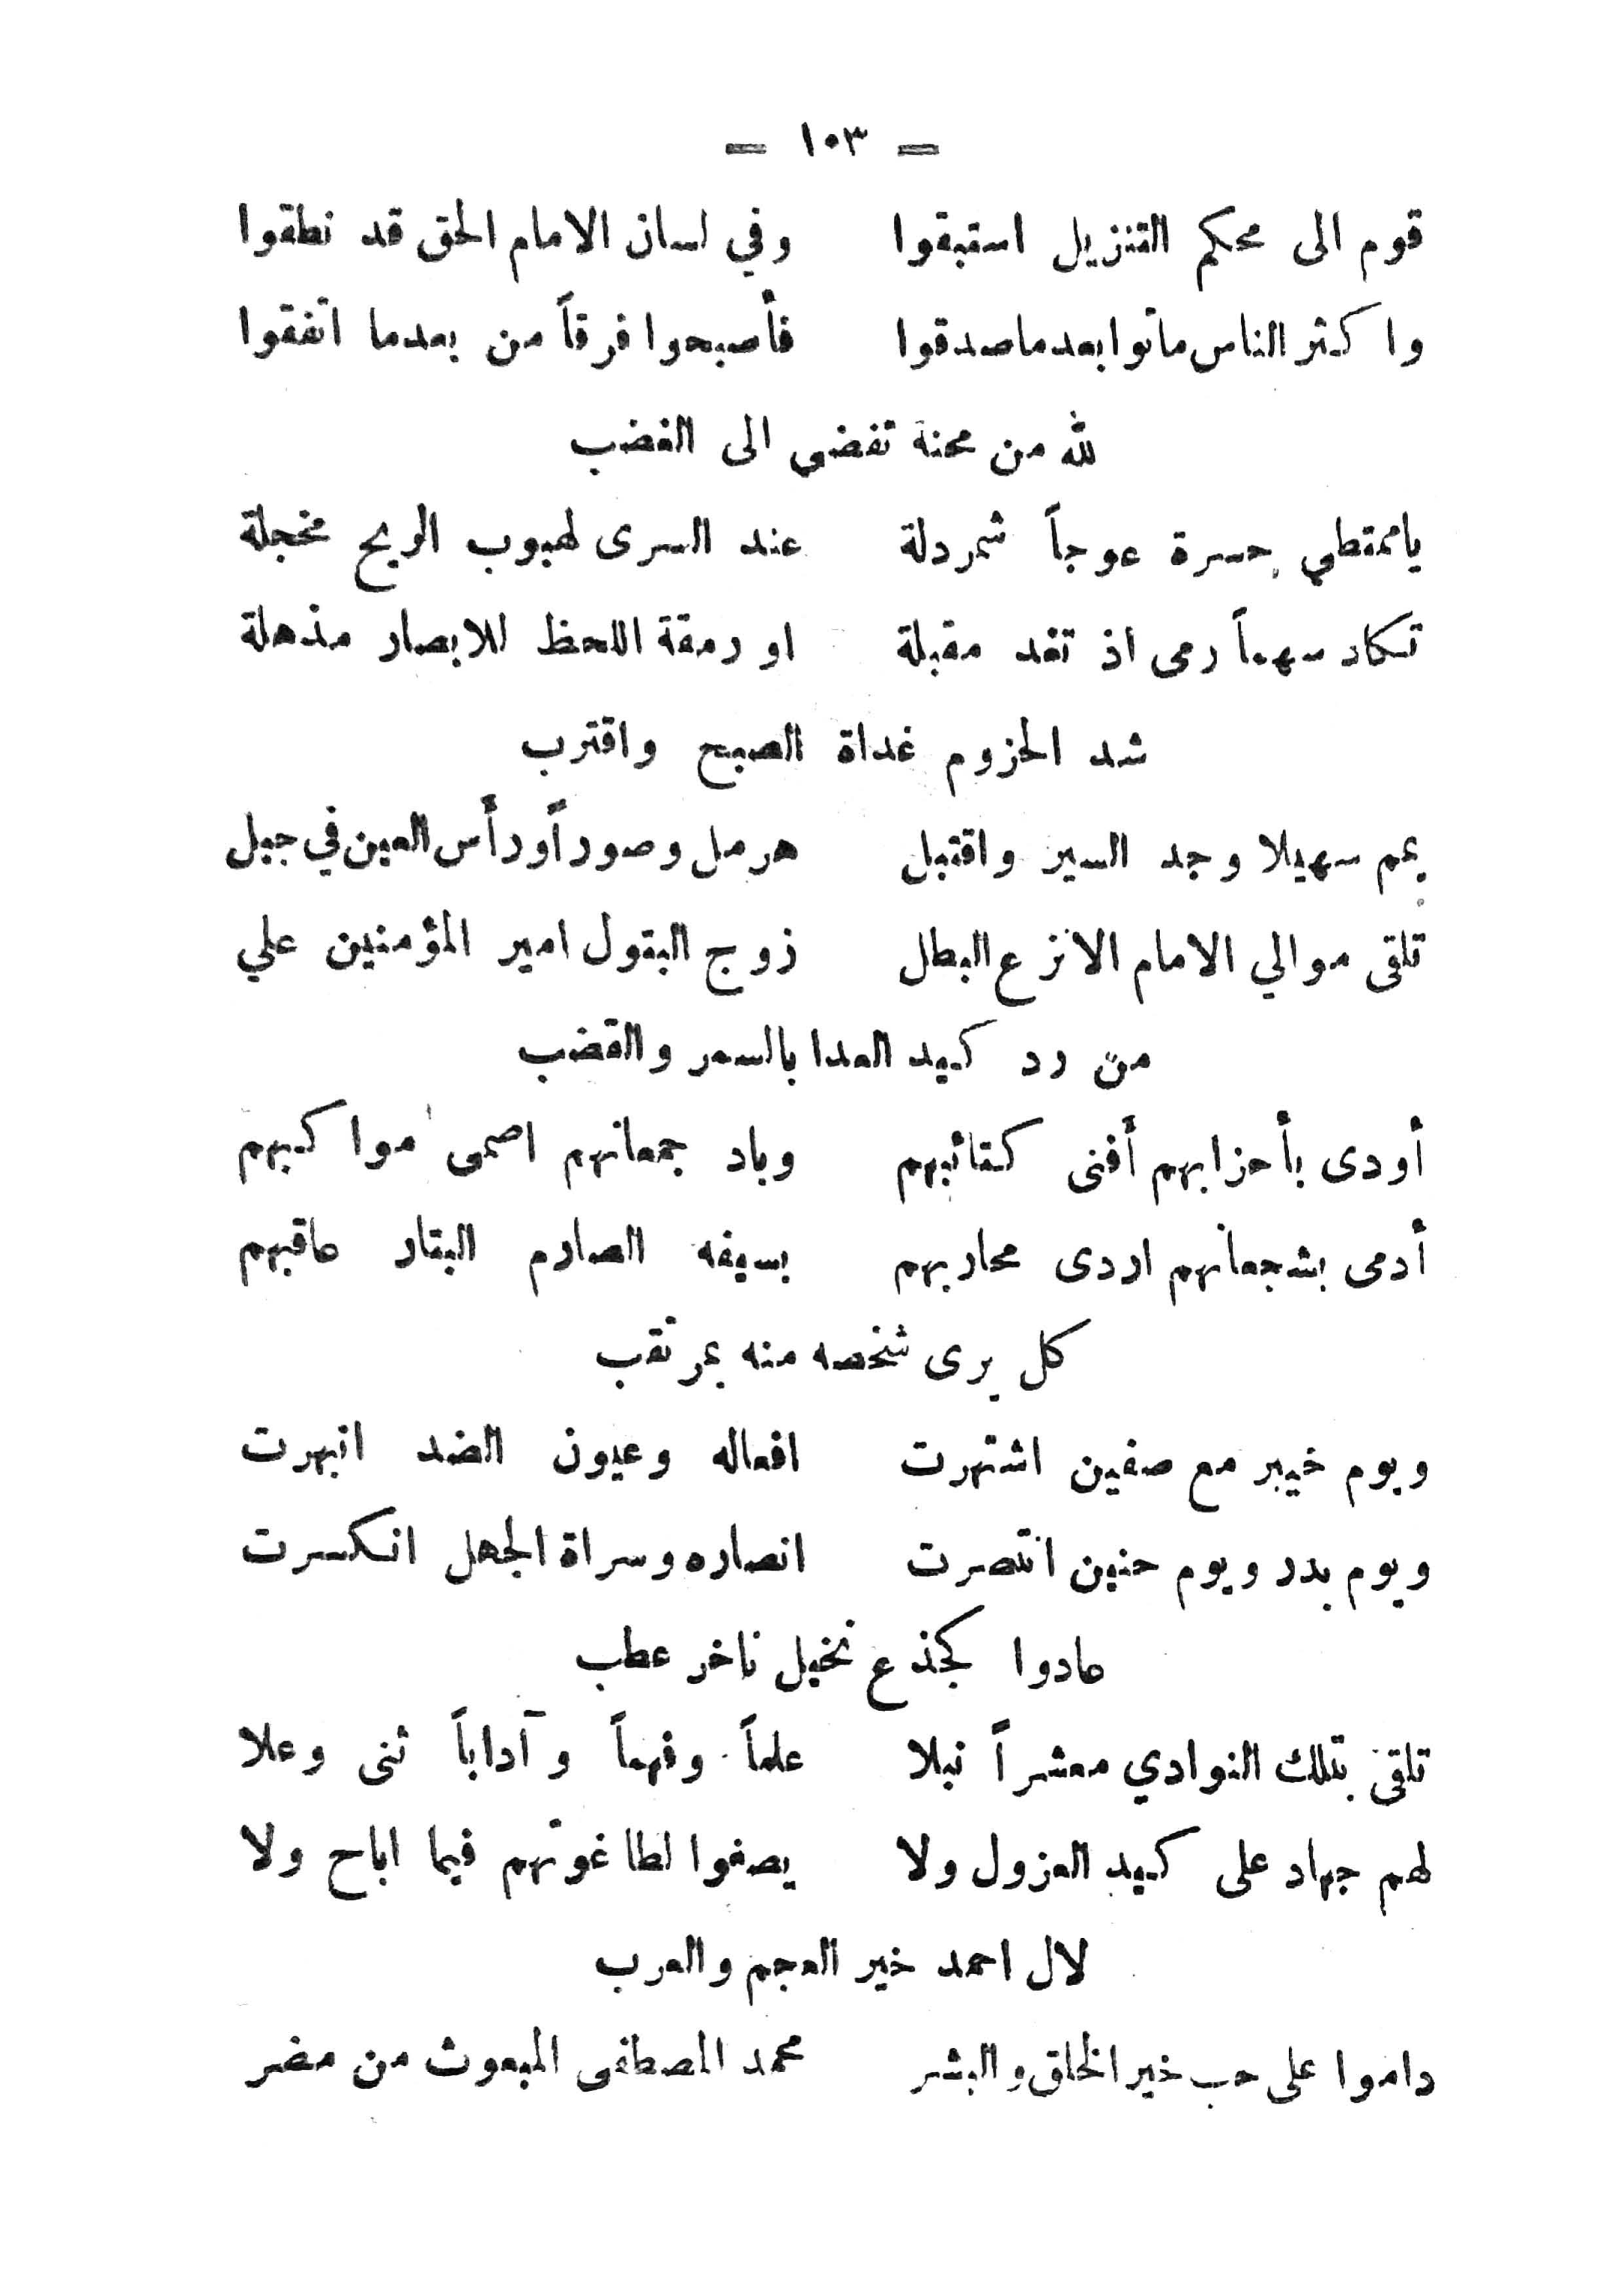 — ١٠٣ —
قوم الى محكم التنزيل استبقوا وفي لسان الامام الحق قد نطقوا
واكثر الناس ماتوا بعد ما صدقوا فأصبحوا فرقاً من بعدما اتفقوا
لله من محنة تفضي الى الغضب
يا ممتطي جسرة عوجاً شمردلة عند السرى لهبوب الريح مخجلة
تكاد سهماً رمى اذ تغد مقبلة او رمقة اللحظ للابصار مذهلة
شد الحزوم غداة الصبح واقترب
يمم سهيلا وجد السير واقتبل هرمل وصوراً ورأس العين في جبل
تلقى موالي الامام الانزع البطل زوج البتول امير المؤمنين علي
من رد كيد العدا بالسمر والقضب
أودى بأحزابهم أفنى كتائبهم وباد جمعانهم اصمى مواكبهم
أدمى بشجعانهم اردى محاربهم بسيفه الصارم البتار عاقبهم
كل يرى شخصه منه بمرتقب
ويوم خيبر مع صفين اشتهرت افعاله وعيون الضد انبهرت
ويوم بدر ويوم حنين انتصرت انصاره وسراة الجهل انكسرت
عادوا كجذع نخيل ناخر عطب
تلقى بتلك النوادي معشراً نبلا علماً وفهماً وآداباً ثنى وعلا
لهم جهاد على كيد العزول ولا يصغوا لطاغوتهم فيما اباح ولا
لال احمد خير العجم والعرب
داموا على حب خير الخلق والبشر محمد المصطفى المبعوث من مضر